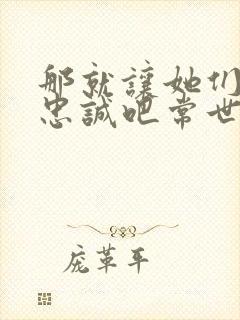 那就讓她们
忠誠吧常世
庞革平